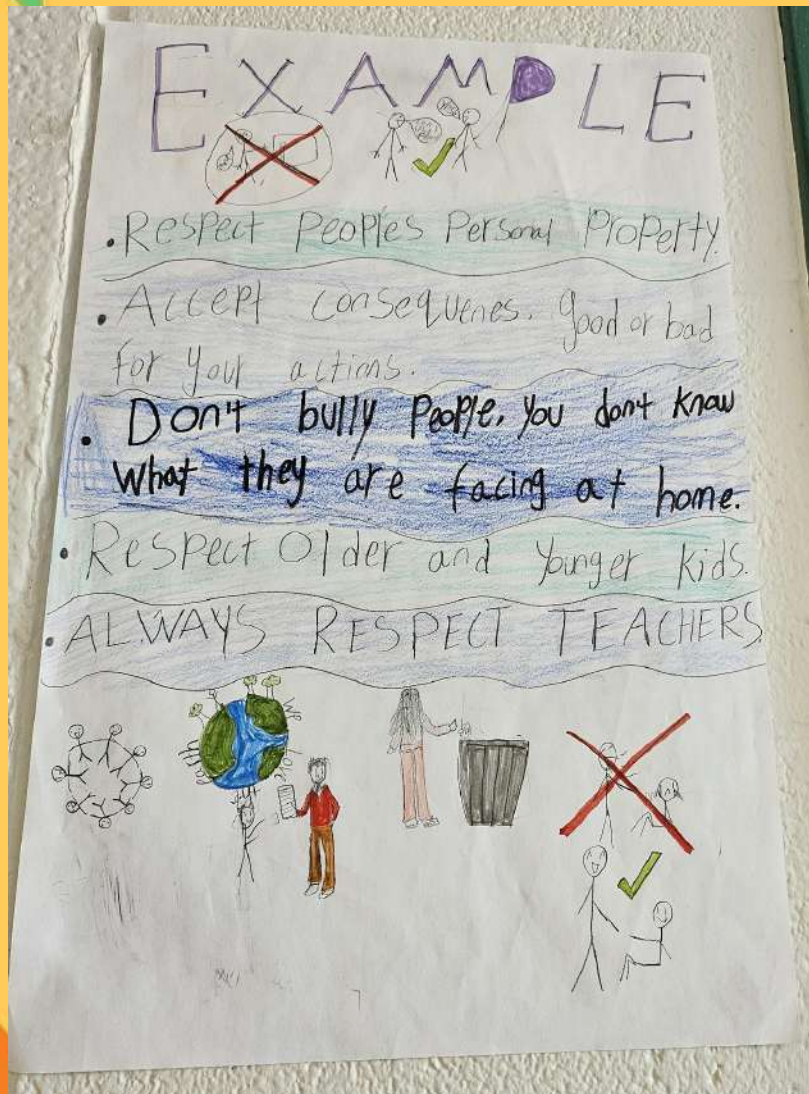 EXAMPLE
• Respect Peoples Personal Property.
• Accept consequenes. good or bad
for your actions.
• Don't bully people, you don't know
what they are facing at home.
• Respect Older and younger kids.
• ALWAYS RESPECT TEACHERS
We
love